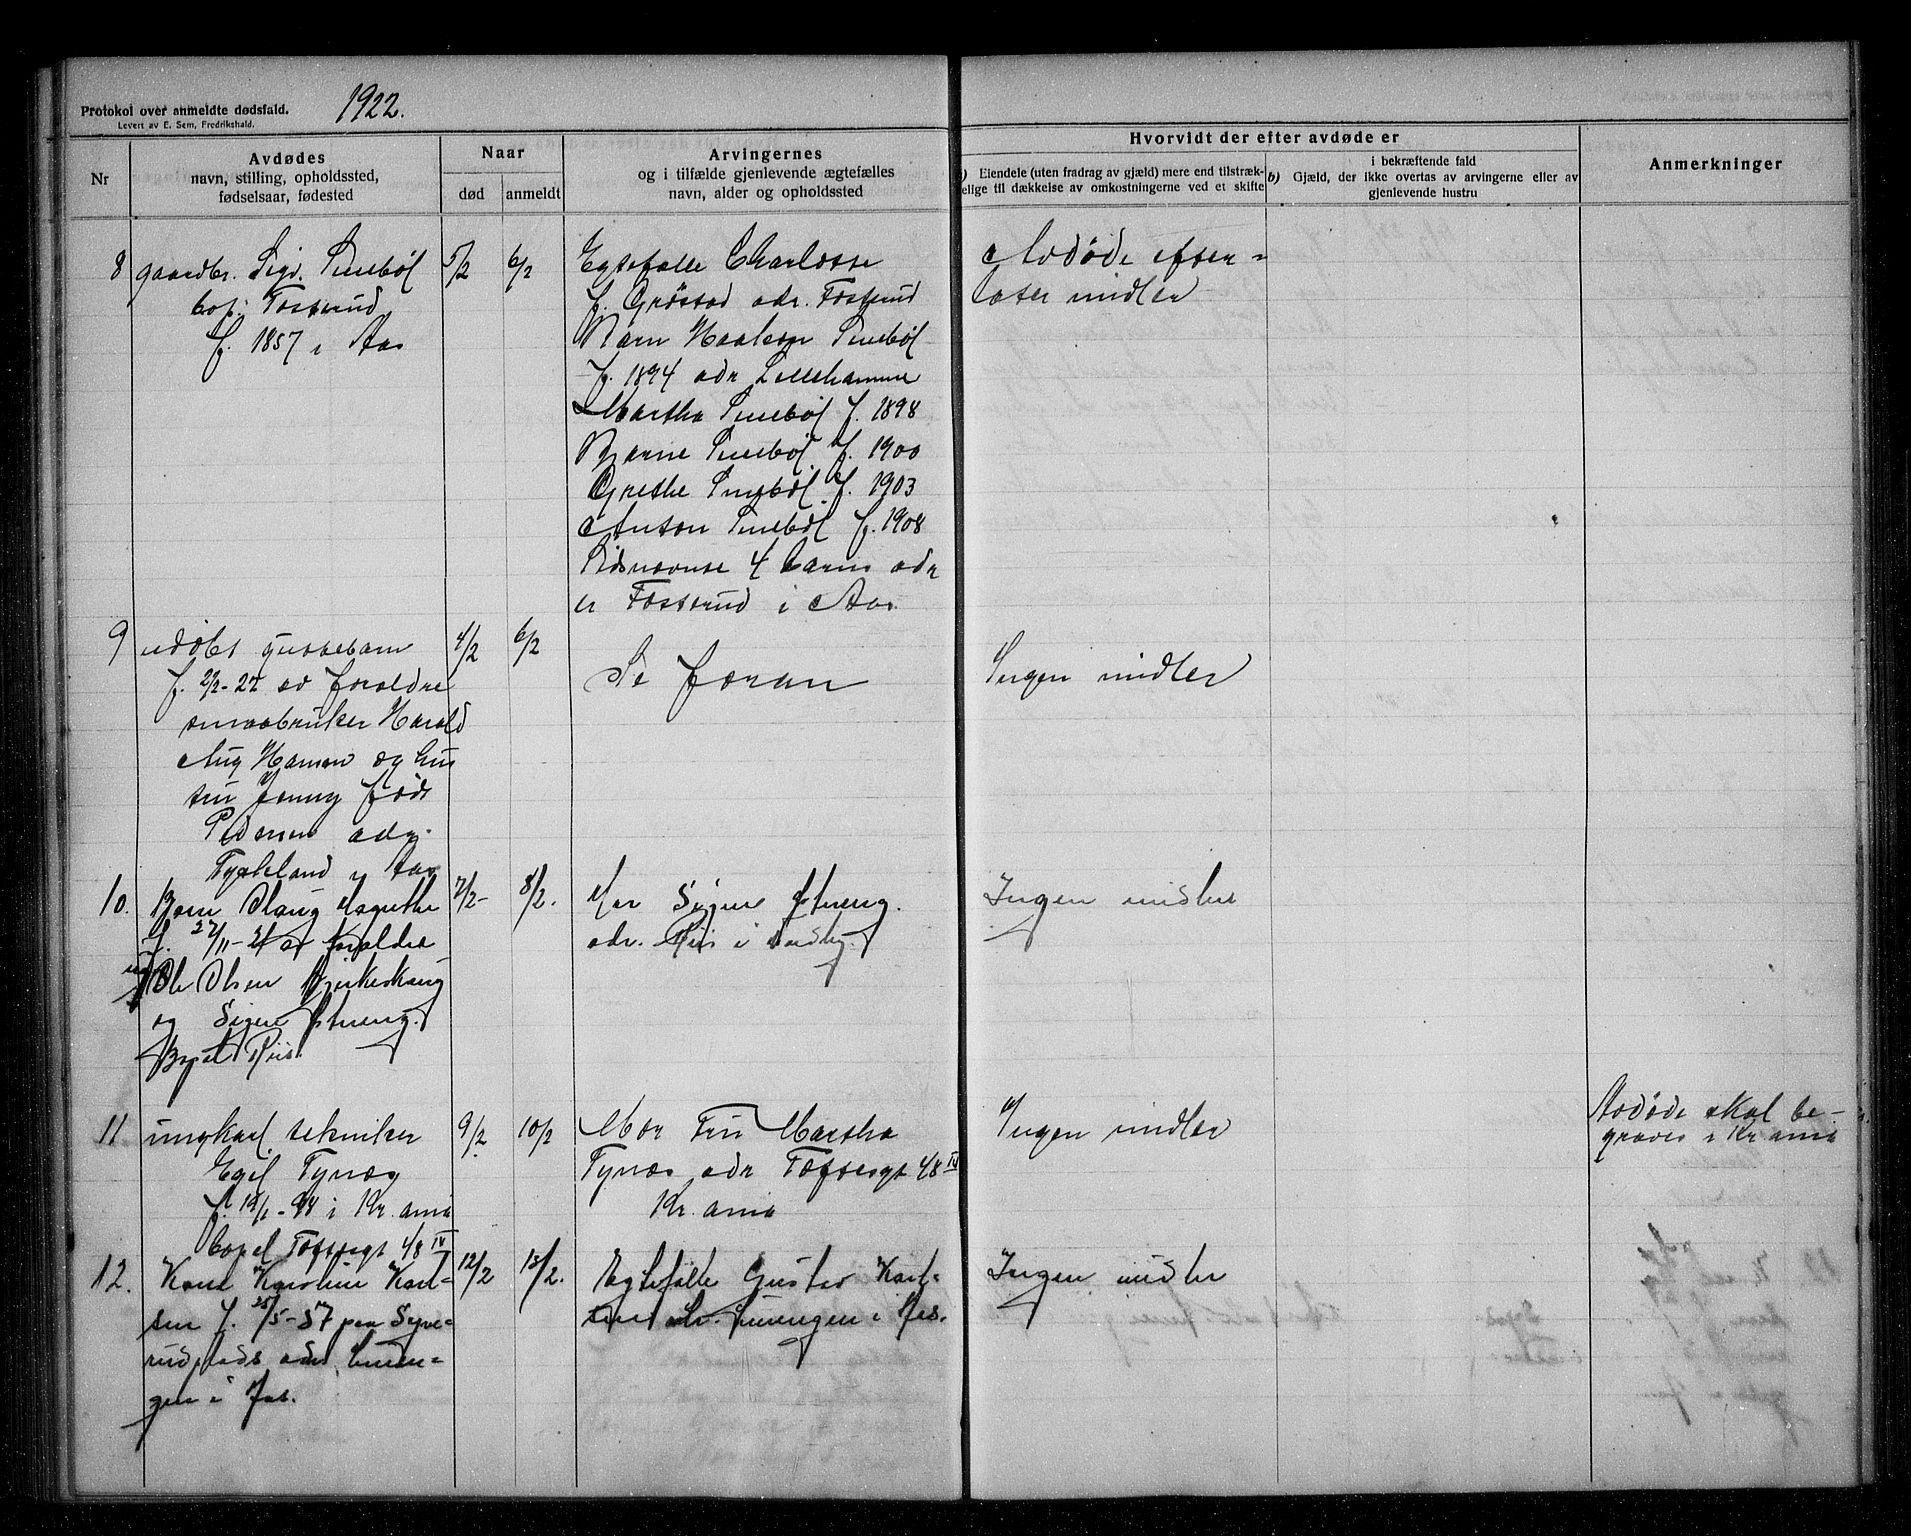 Protokol over anmeldte dødsfald.
Levert av E. Sem, Fredrikshald.
1922.
Nr
Avdødes
navn, stilling, opholdssted,
fødselsaar, fødested
Naar
død
anmeldt
Arvingernes
og i tilfælde gjenlevende ægtefælles
navn, alder og opholdssted
Hvorvidt der efter avdøde er
a) Eiendele (uten fradrag av gjæld) mere end tilstræk-
kelige til dækkelse av omkostningerne ved et skifte
i bekræftende fald
b) Gjæld, der ikke overtas av arvingerne eller av
gjenlevende hustru
Anmerkninger
8
gaardbr. Sigv. Smebøl
bop. Fosterud
f. 1857 i Aas
5/2
6/2
Egtefælle Charlotte
f. Grøstad adr. Fosterud
Barn Haakon Smebøl
f. 1894 adr Lillehammer
Martha Smebøl f. 1898
Bjarne Smebøl f. 1900
Grethe Smebøl f. 1903
Anton Smebøl f. 1908
Sidsnevnte 4 barns adr
er Fosterud i Aas
Avdøde efter-
later midler
9
udøbt guttebarn
f. 2/2-22 av forældre
smaabruker Harald
Aug Hansen og hus
tru Jenny født
Pedersen adr.
i Aas
4/2
6/2
Se foran
Ingen midler
10.
Barn Olaug Margrethe
f. 27/11-21 av forældre
Ole Olsen Birkeskaug
og Signe Østreng.
Bopæl Riis.
7/2-
8/2.
Mor Signe Østreng.
adr. Riis i
Ingen midler
11
ungkarl tekniker
Egil Tynæs
f. 19/1-98 i Kr.ania
bopel Toftesgt 48 IV
9/2
10/2
Mor Fru Martha
Tynæs adr Toftesgt 48 IV
Kr.ania
Ingen midler
Avdøde skal be-
graves i Kr.ania
12.
Kone Karoline Karl-
sen f. 25/5-57 paa Syve-
rudplads adr.
gen i Aas.
12/2
13/2.
Egtefælle Gustav Karl-
sen adr. i Aas.
Ingen midler